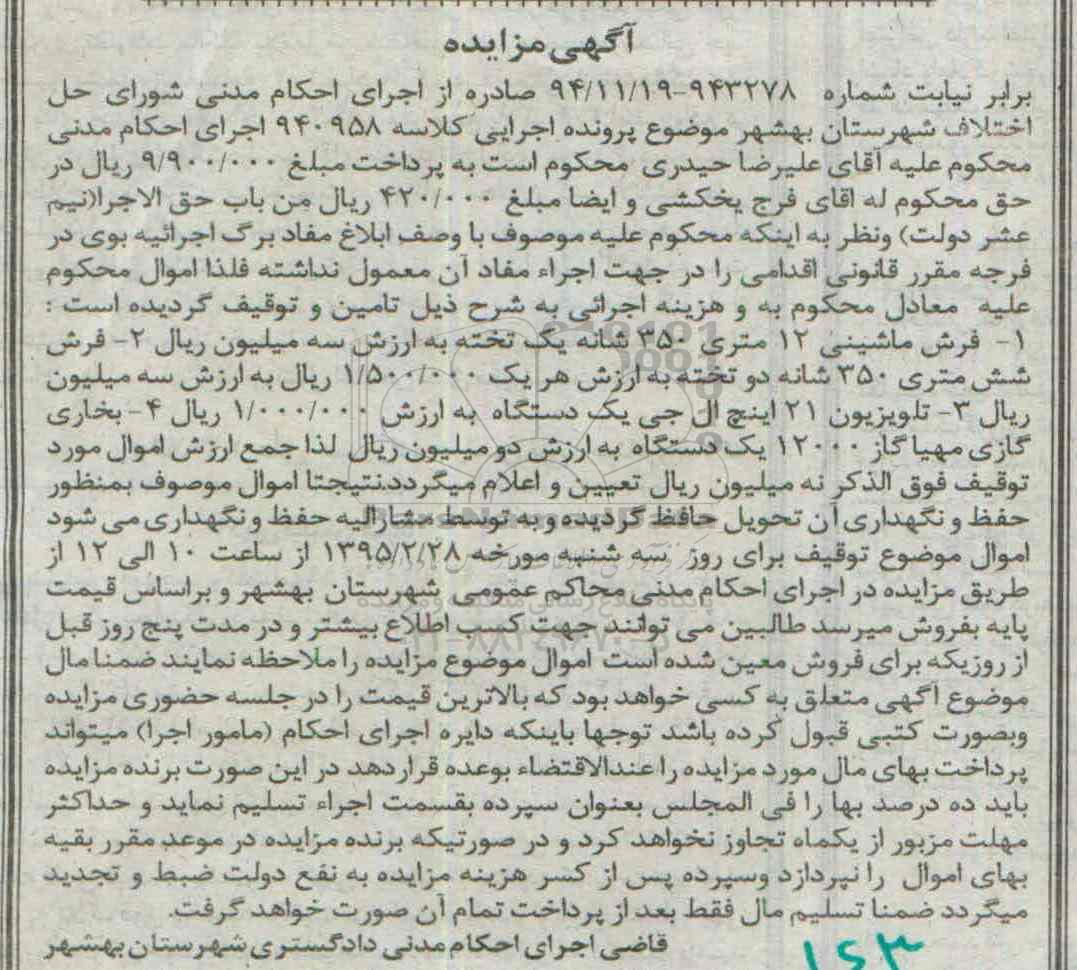 آگهی مزایده
برابر نیابت شماره ۹۴۳۲۷۸-۹۴/۱۱/۱۹ صادره از اجرای احکام مدنی شورای حل
اختلاف شهرستان بهشهر موضوع پرونده اجرایی کلاسه ۹۴۰۹۵۸ اجرای احکام مدنی
محکوم علیه آقای علیرضا حیدری محکوم است به پرداخت مبلغ ۹/۹۰۰/۰۰۰ ریال در
حق محکوم له اقای فرج یخکشی و ایضا مبلغ ۴۲۰/۰۰۰ ریال من باب حق الاجرا(نیم
عشر دولت) ونظر به اینکه محکوم علیه موصوف با وصف ابلاغ مفاد برگ اجرائیه بوی در
فرجه مقرر قانونی اقدامی را در جهت اجراء مفاد آن معمول نداشته فلذا اموال محکوم
علیه معادل محکوم به و هزینه اجرائی به شرح ذیل تامین و توقیف گردیده است :
۱- فرش ماشینی ۱۲ متری ۳۵۰ شانه یک تخته به ارزش سه میلیون ریال ۲- فرش
شش متری ۳۵۰ شانه دو تخته به ارزش هر یک ۱/۵۰۰/۰۰۰ ریال به ارزش سه میلیون
ریال ۳- تلویزیون ۲۱ اینچ ال جی یک دستگاه به ارزش ۱/۰۰۰/۰۰۰ ریال ۴- بخاری
گازی مهیا گاز ۱۲۰۰۰ یک دستگاه به ارزش دو میلیون ریال لذا جمع ارزش اموال مورد
توقیف فوق الذکر نه میلیون ریال تعیین و اعلام میگردد.نتیجتا اموال موصوف بمنظور
حفظ و نگهداری آن تحویل حافظ گردیده و به توسط مشارالیه حفظ و نگهداری می شود
اموال موضوع توقیف برای روز سه شنبه مورخه ۱۳۹۵/۲/۲۸ از ساعت ۱۰ الی ۱۲ از
طریق مزایده در اجرای احکام مدنی محاکم عمومی شهرستان بهشهر و براساس قیمت
پایه بفروش میرسد طالبین می توانند جهت کسب اطلاع بیشتر و در مدت پنج روز قبل
از روزیکه برای فروش معین شده است اموال موضوع مزایده را ملاحظه نمایند ضمنا مال
موضوع آگهی متعلق به کسی خواهد بود که بالاترین قیمت را در جلسه حضوری مزایده
وبصورت کتبی قبول کرده باشد توجها باینکه دایره اجرای احکام (مامور اجرا) میتواند
پرداخت بهای مال مورد مزایده را عندالاقتضاء بوعده قراردهد در این صورت برنده مزایده
باید ده درصد بها را فی المجلس بعنوان سپرده بقسمت اجراء تسلیم نماید و حداکثر
مهلت مزبور از یکماه تجاوز نخواهد کرد و در صورتیکه برنده مزایده در موعد مقرر بقیه
بهای اموال را نپردازد وسپرده پس از کسر هزینه مزایده به نفع دولت ضبط و تجدید
میگردد ضمنا تسلیم مال فقط بعد از پرداخت تمام آن صورت خواهد گرفت.
قاضی اجرای احکام مدنی دادگستری شهرستان بهشهر